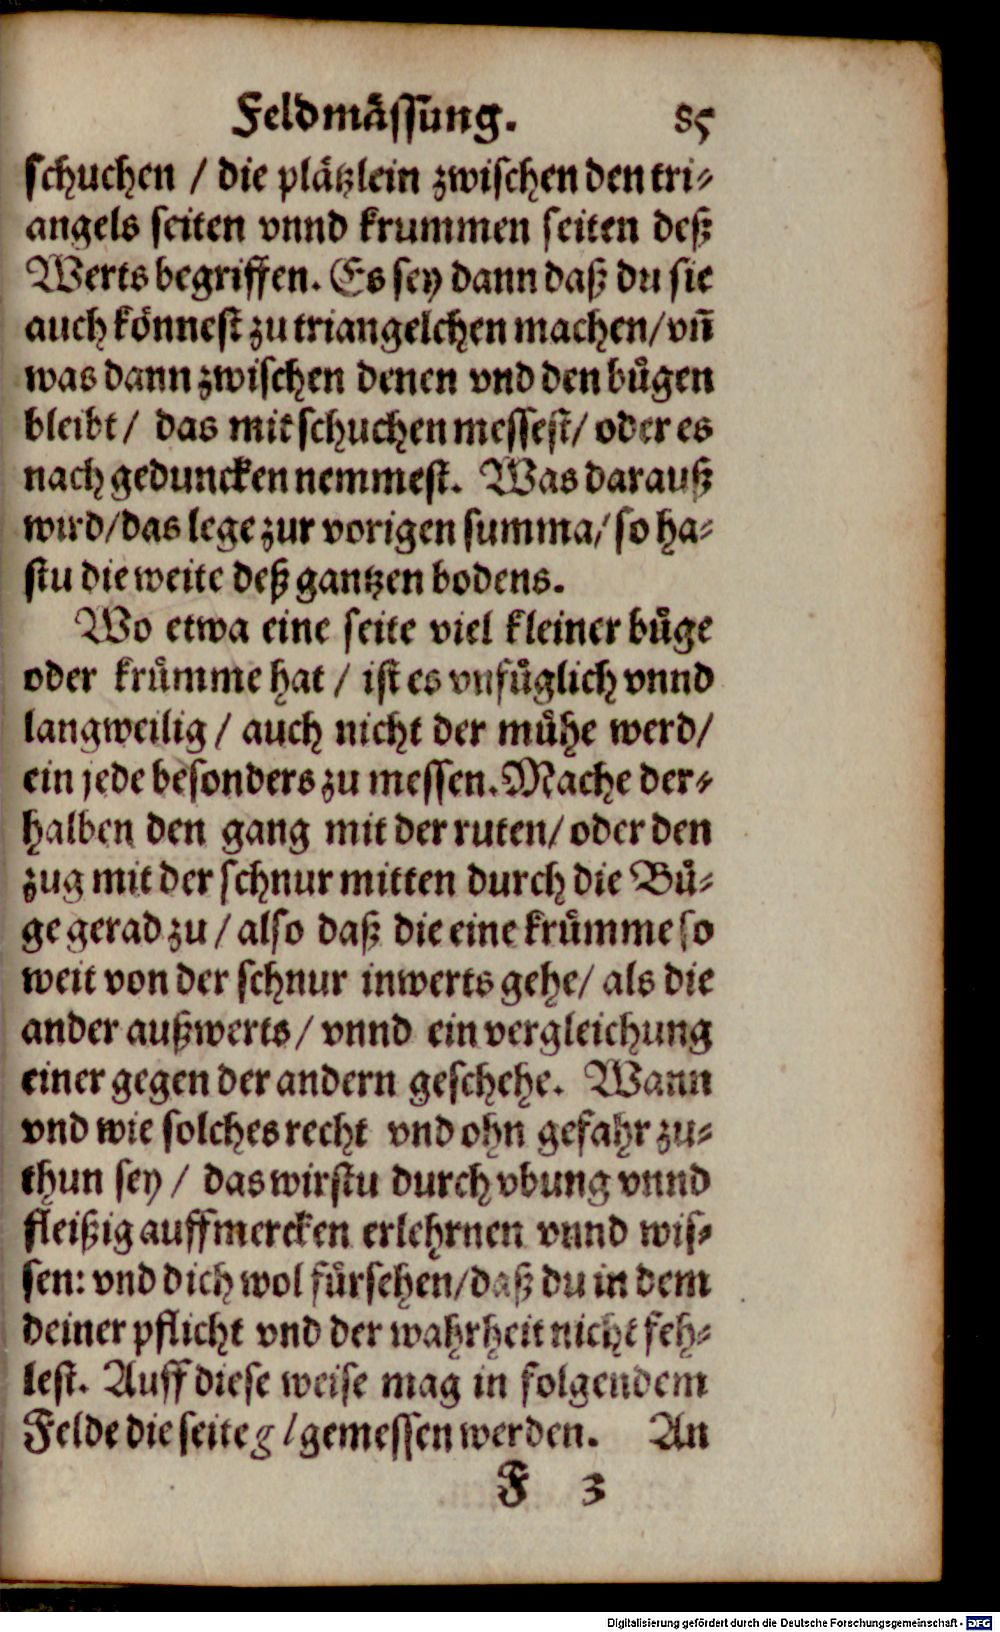 Feldmässung. 85
schuchen / die plätzlein zwischen den tri⸗
angels seiten vnnd krummen seiten deß
Werts begriffen. Es sey dann daß du sie
auch könnest zu triangelchen machen/ vn̄
was dann zwischen denen vnd den bůgen
bleibt / das mit schuchen messest / oder es
nach geduncken nemmest. Was darauß
wird/ das lege zur vorigen summa/ so ha⸗
stu die weite deß gantzen bodens.
Wo etwa eine seite viel kleiner bůge
oder krůmme hat / ist es vnfůglich vnnd
langweilig / auch nicht der můhe werd/
ein jede besonders zu messen. Mache der⸗
halben den gang mit der ruten/ oder den
zug mit der schnur mitten durch die Bů⸗
ge gerad zu / also daß die eine krůmme so
weit von der schnur inwerts gehe/ als die
ander außwerts / vnnd ein vergleichung
einer gegen der andern geschehe. Wann
vnd wie solches recht vnd ohn gefahr zu⸗
thun sey / das wirstu durch vbung vnnd
fleißig auffmercken erlehrnen vnnd wis⸗
sen: vnd dich wol fůrsehen/ daß du in dem
deiner pflicht vnd der wahrheit nicht feh⸗
lest. Auff diese weise mag in folgendem
Felde die seite g l gemessen werden. An
F 3
Digitalisierung gefördert durch die Deutsche Forschungsgemeinschaft - DFG